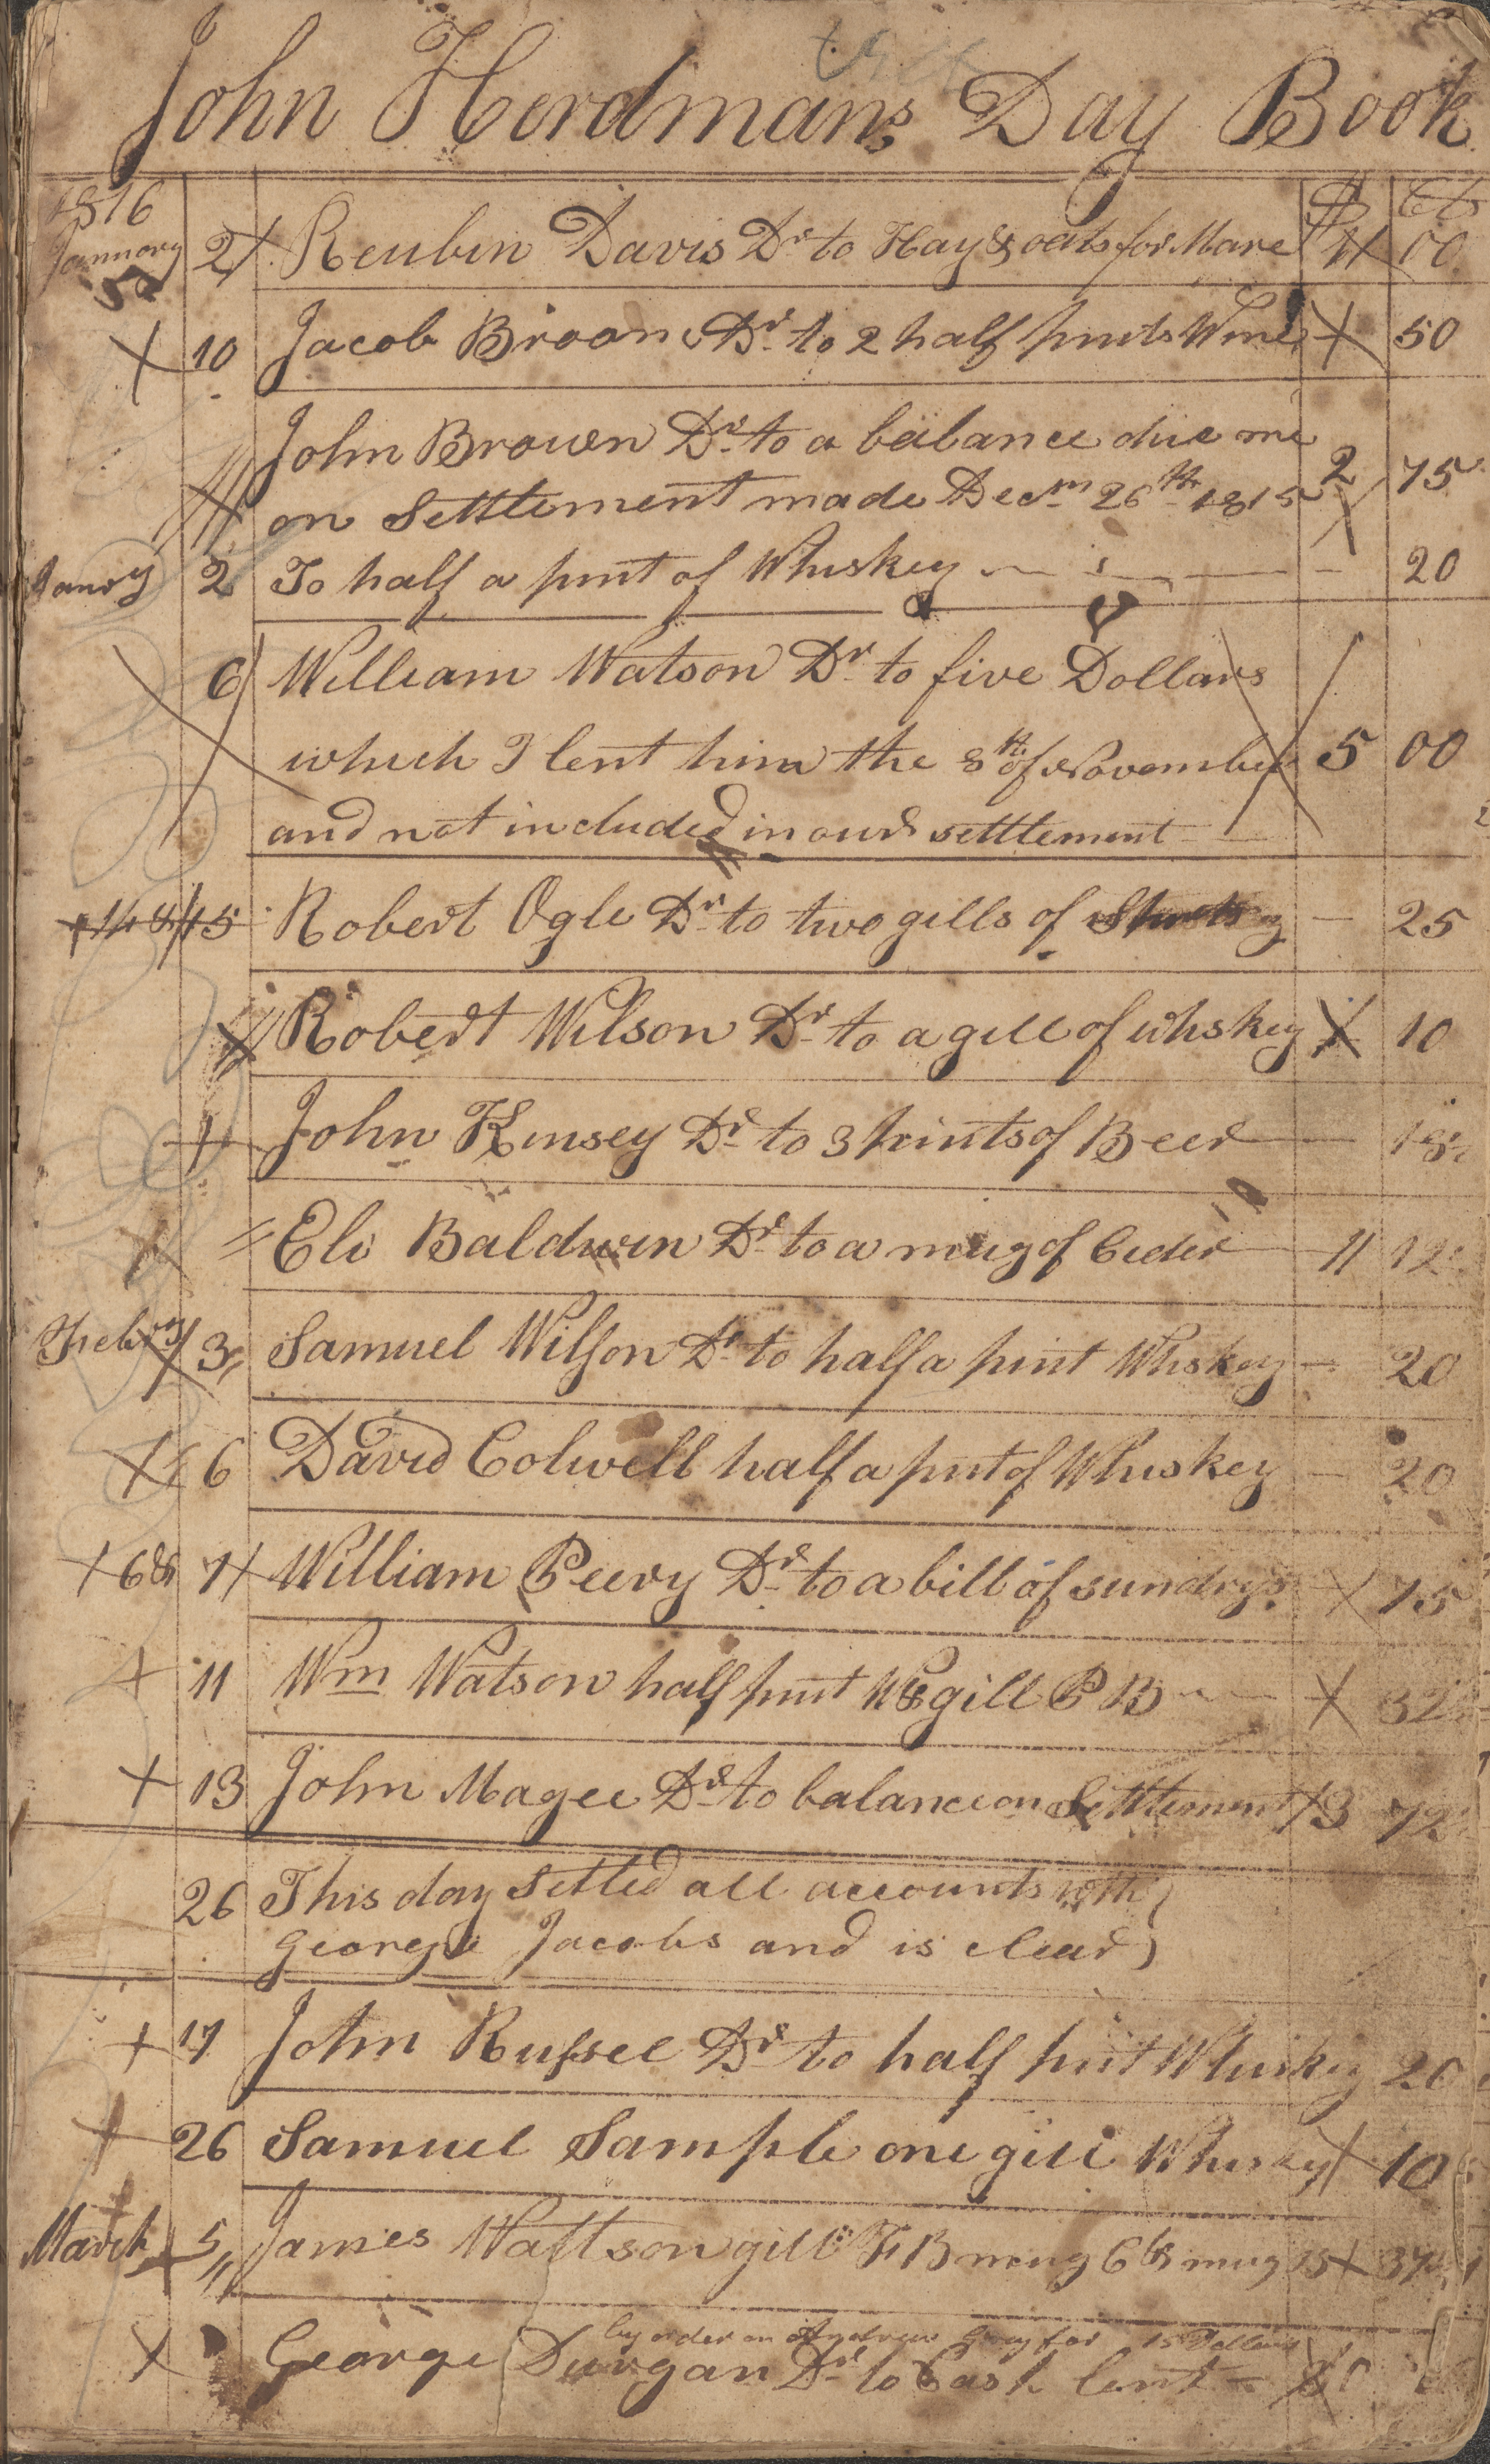 John Herdmans Day Book
1816 $ Cts
Jannory 2 Reubin Davis Dr to Hay & oats for Mare 4 00
10 Jacob Broon Dr to 2 half pints Wine 50
John Brown Dr to a balance due me
on Settlement made Decm 26th 1815 2 75
Janry 2 To half a pint of Whiskey 20
6 William Watson Dr to five Dollars
which I lent him the 8th of November 5 00
and not included in our settlement
14 & 15 Robert Ogle Dr to two gills of 25
Robert Wilson Dr to a gill of whskey 10
John Kinsey Dr to 3 pints of Beer 18
Eli Baldwin Dr to a mug of Cider 12
Febry 3 Samuel Wilson Dr to half a pint Whskey 20
6 David Colwell half a pint of Whiskey 20
6 & 7 William Peery Dr to a bill of sundrys 75
11 Wm Watson half pint W & gill P B 32
13 John Magee Dr to balance on Settlement 3 72
26 This day Setled all accounts with
George Jacobs and is clear
17 John Russel Dr to half pint Whiskey 20
26 Samuel Sample one gill Whiskey 10
March 5 James Wattson gill F B mug C & mug 37
by order on Andrew Gray for 15 Dollars
George Durgan Dr to Cash lent